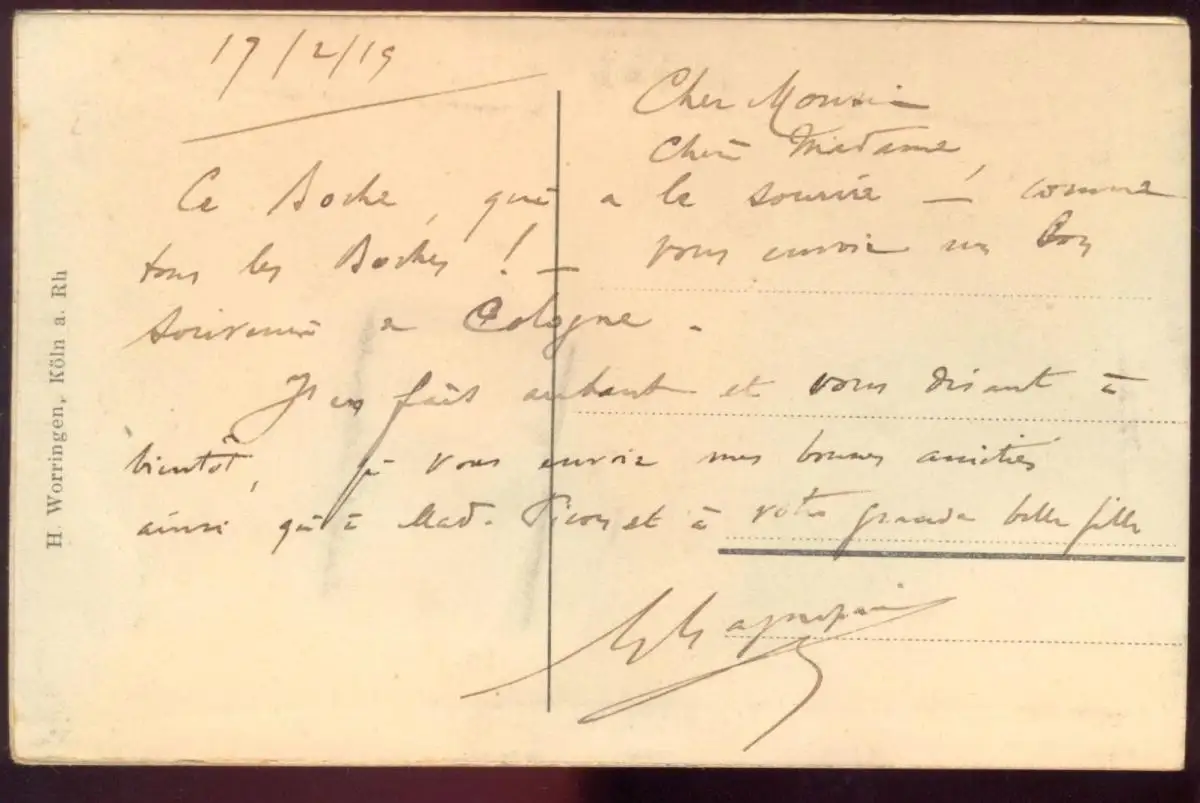 17/2/19
Cher Monsieur
Chère Madame,
Ce Boche, qui a le sourire – comme
tous les Boches ! – vous envoie un bon
souvenir de Cologne.
J'en fais autant et vous disant à
bientôt, je vous envoie mes bonnes amitiés
ainsi qu'à Mad. et à votre grande belle fille
H. Worringen, Köln a. Rh